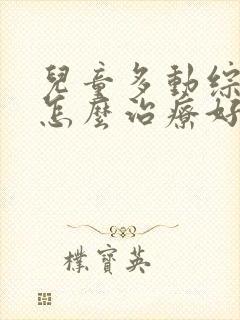 兒童多動綜
怎麼治療好
樸寶英